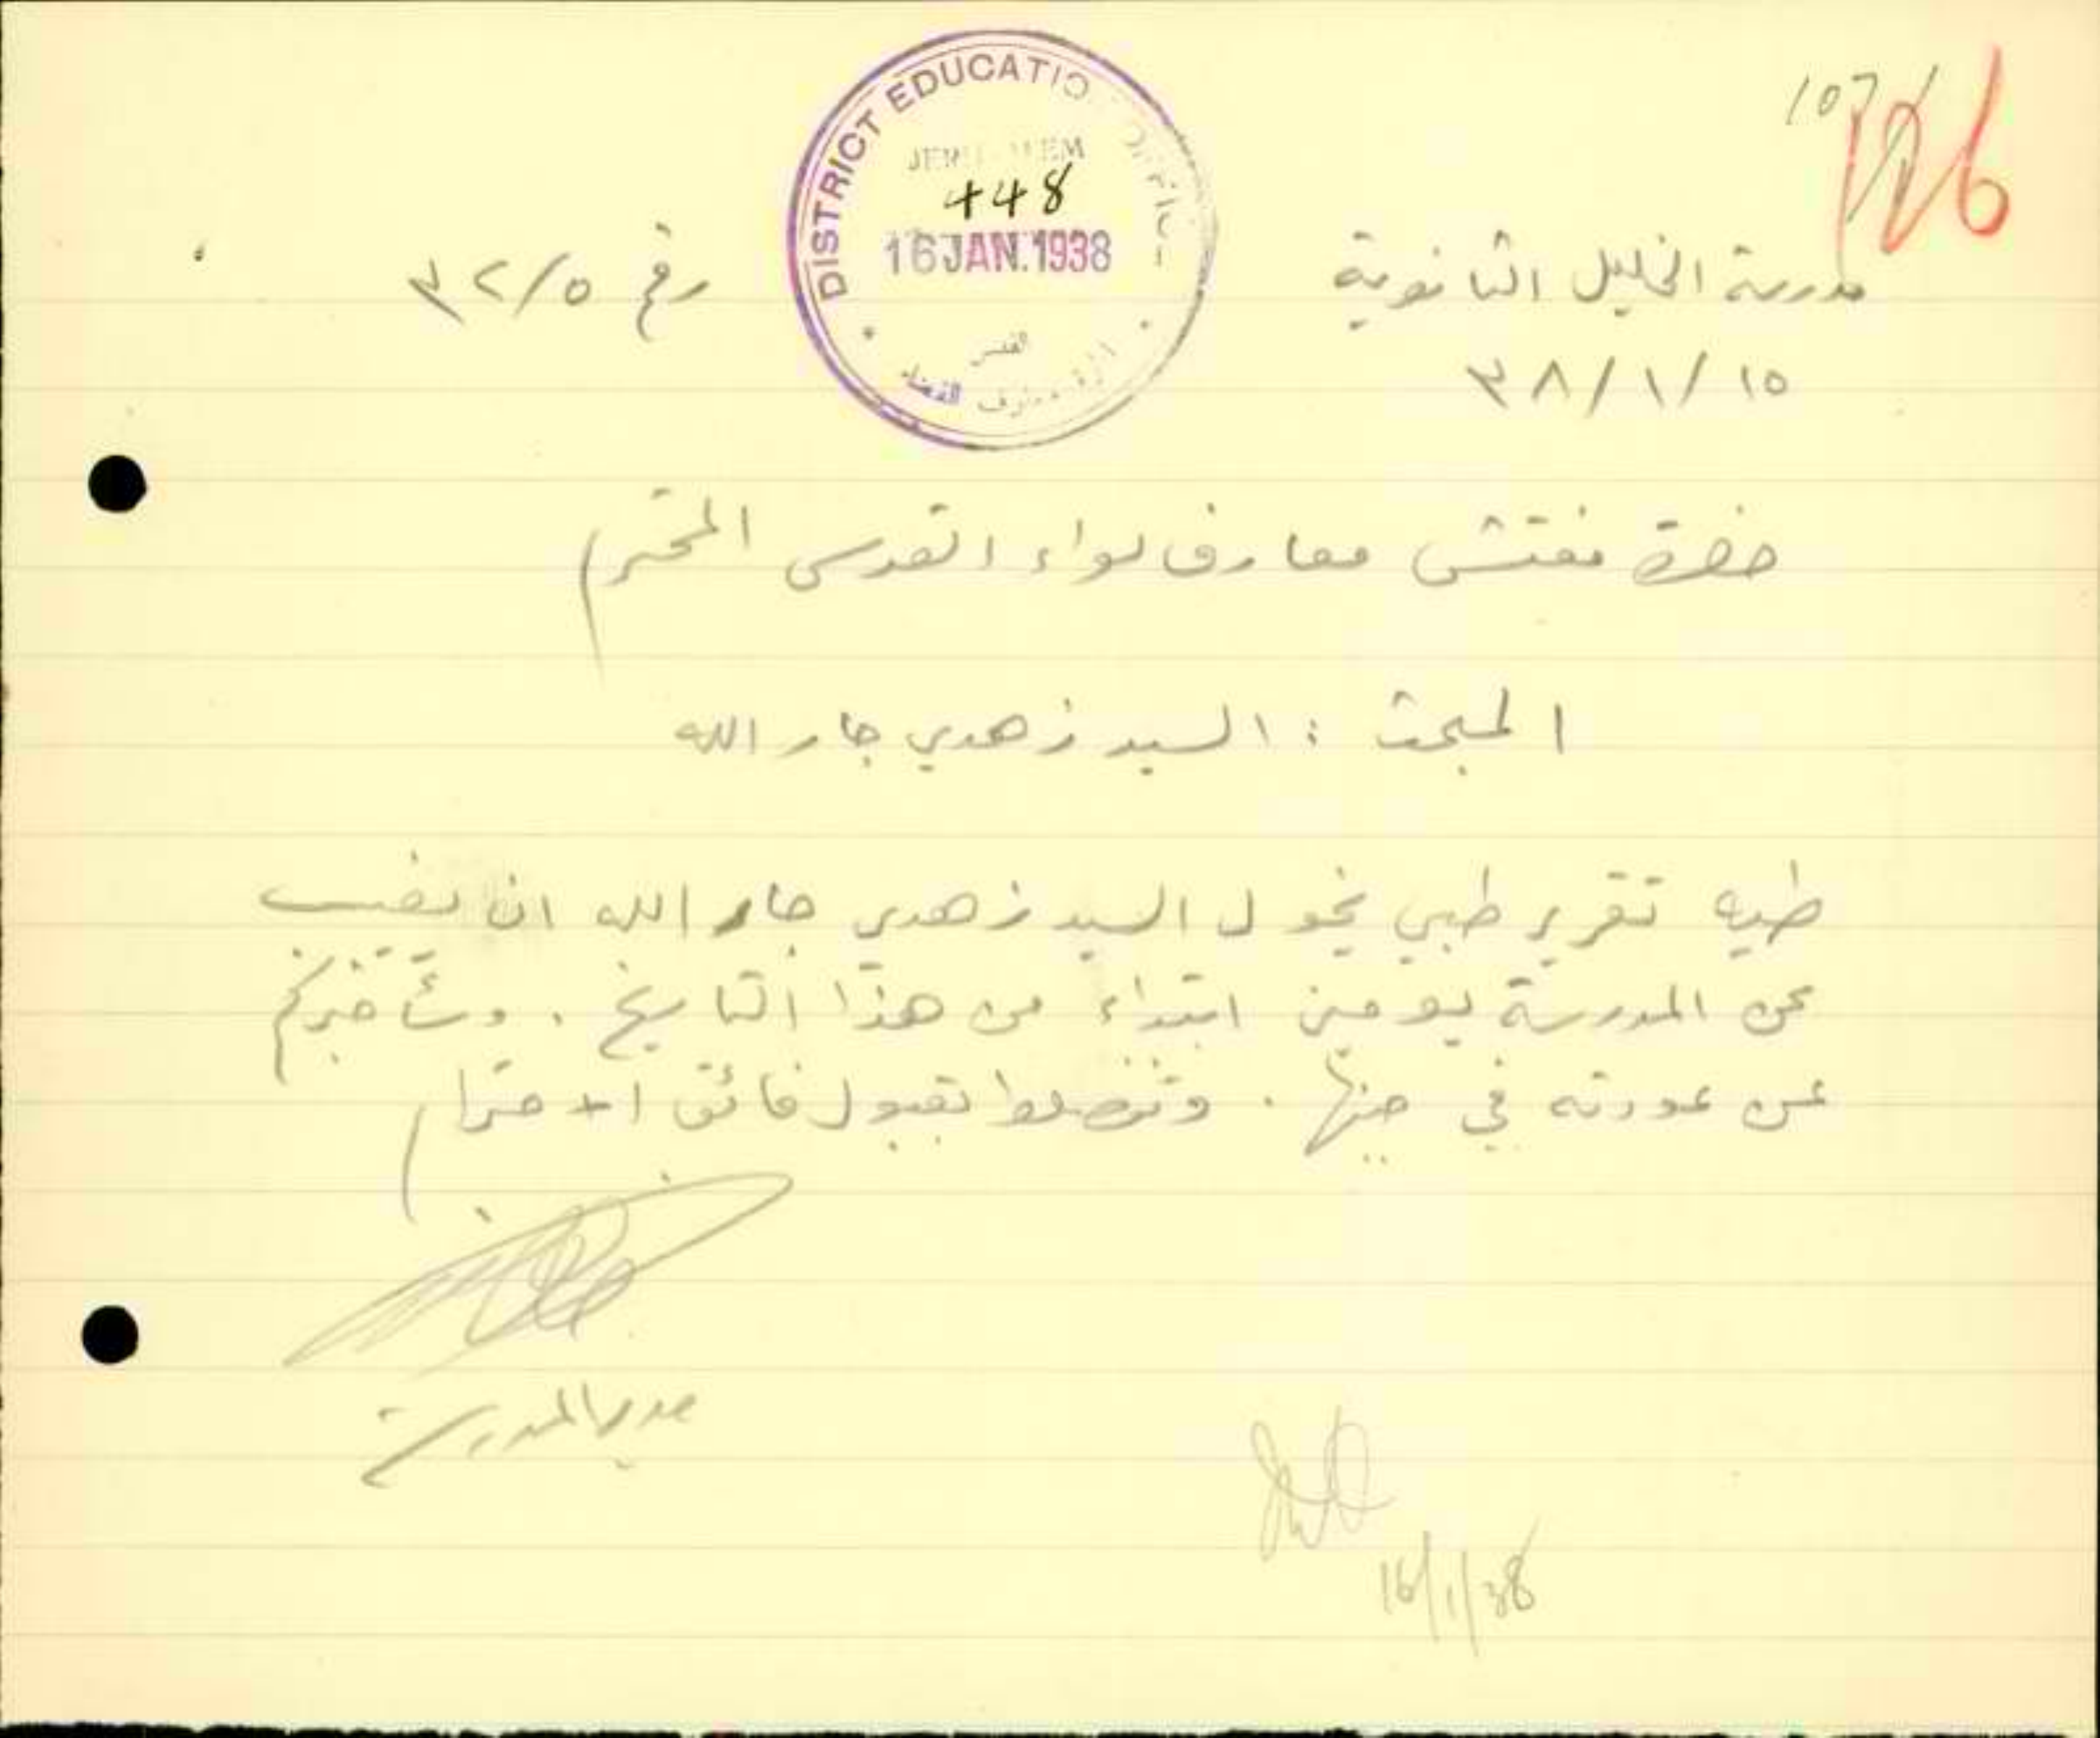 107
126
DISTRICT EDUCATION OFFICE
JERUSALEM
448
16 JAN. 1938
القدس
مدرسة الخليل الثانوية
رقم ٥/٣٢
١٥/١/٣٨
حضرة مفتش معارف لواء القدس المحترم
المبحث : السيد زهدي جار الله
طيه تقرير طبي يخول السيد زهدي جار الله ان يغيب
عن المدرسة يومين ابتداء من هذا التاريخ . وسأخبركم
عن عودته في حينها . وتفضلوا بقبول فائق الاحترام
مدير المدرسة
16/1/38